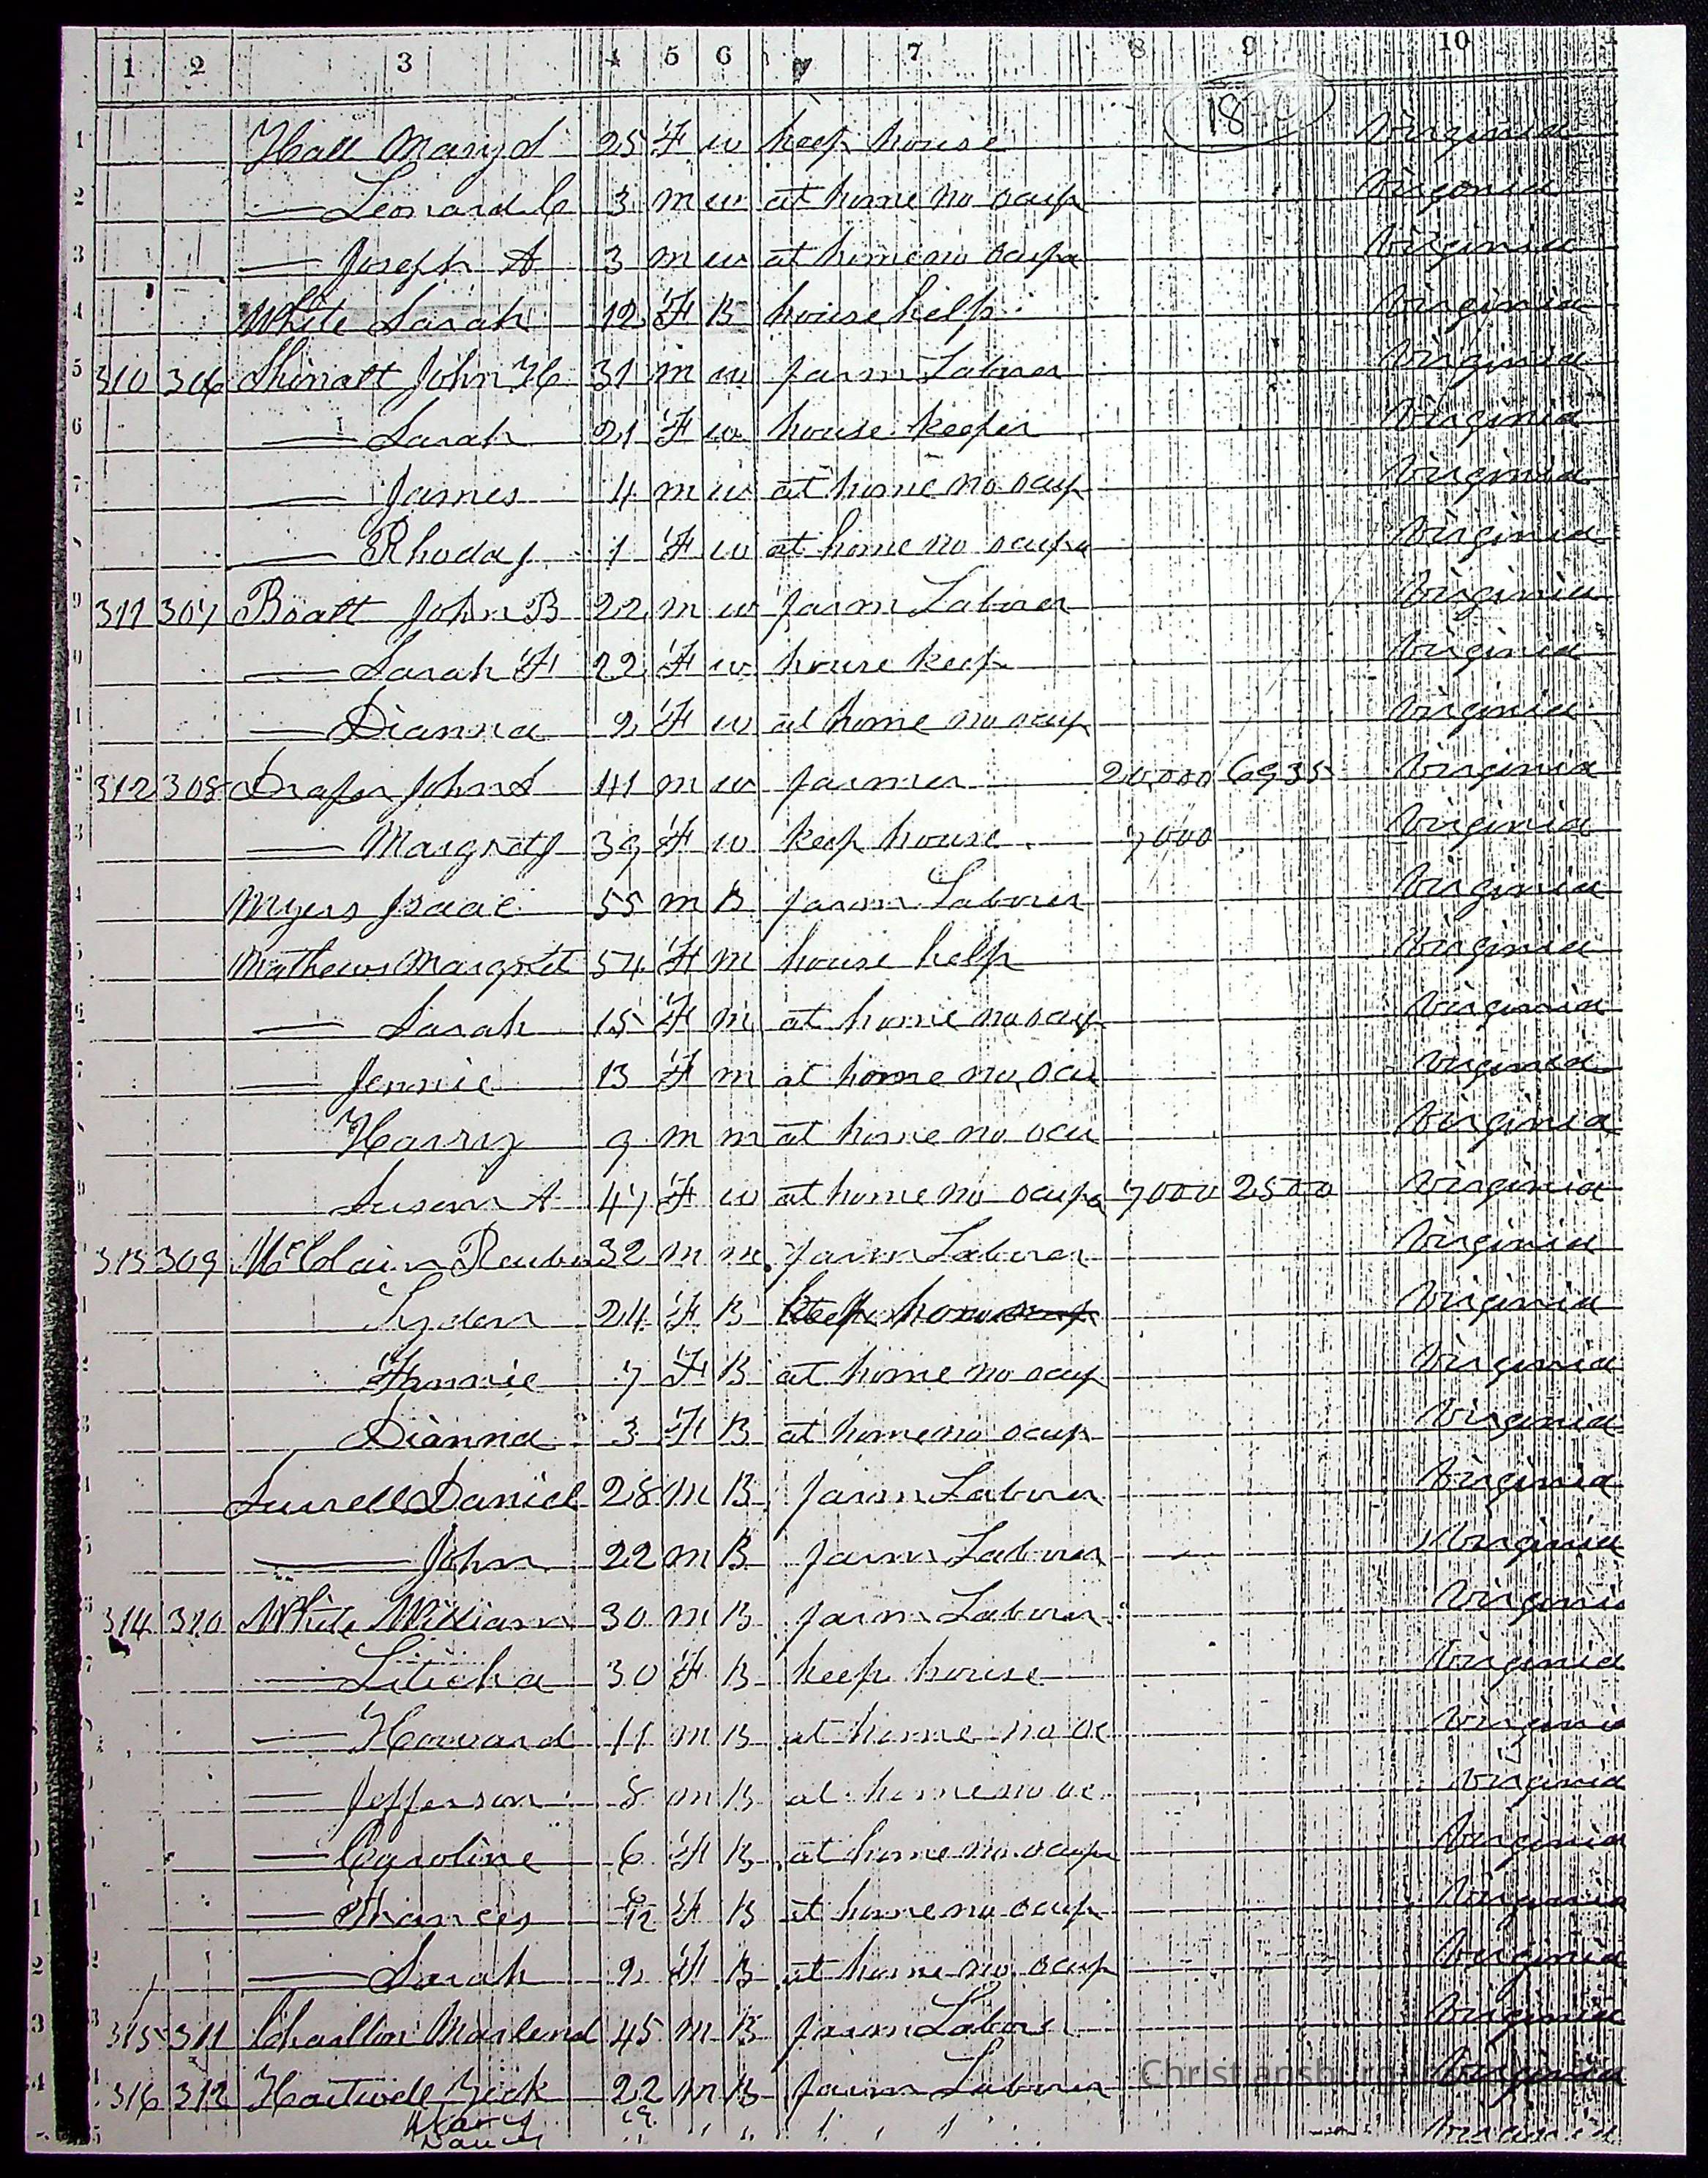 1 2 3 4 5 6 7 8 9 10
1870
1 Hall Mary d 25 F w keep house Virginia
2 — Leonard C 3 m w at home no ocup Virginia
3 — Joseph A 3 m w at home no ocupa Virginia
4 White Sarah 12 F B house help Virginia
5 310 306 John H 31 m w farm Laborer Virginia
6 — Sarah 21 F w house keeper Virginia
7 — James 4 m w at home no ocup Virginia
— Rhoda J 1 F w at home no ocupa Virginia
9 311 307 Bratt John B 22 m w farm Laborer Virginia
— Sarah F 22 F w house keep Virginia
— Dianna 2 F w at home no ocup Virginia
312 308 Draper John S 41 m w farmer 20,000 6935 Virginia
— Margret J 39 F w keep house 7000 Virginia
Myers Isaac 55 m B farm Laborer Virginia
Mathews Margret 54 F m house help Virginia
— Sarah 15 F m at home no ocup Virginia
— Jennie 13 F m at home no ocu Virginia
Harry 9 m m at home no ocu Virginia
Susan A 47 F w at home no ocupa 7000 2500 Virginia
313 309 McClain Reuben 32 m m farm Laborer Virginia
24 F B keep house Virginia
Fannie 7 F B at home no ocup Virginia
Dianna 3 F B at home no ocup Virginia
Daniel 28 m B farm Laborer Virginia
— John 22 m B farm Laborer Virginia
314 310 White William 30 m B farm Laborer Virginia
— Liticha 30 F B keep house Virginia
— Howard 11 m B at home no oc Virginia
— Jefferson 8 m B at home no oc Virginia
— Caroline 6 F B at home no ocup Virginia
— Frances F B at home no ocup Virginia
— Sarah 2 F B at home no ocup Virginia
315 311 Charlton 45 m B farm Laborer Virginia
316 312 Hartwell Zick 22 m B farm Laborer Virginia
Nancy Virginia